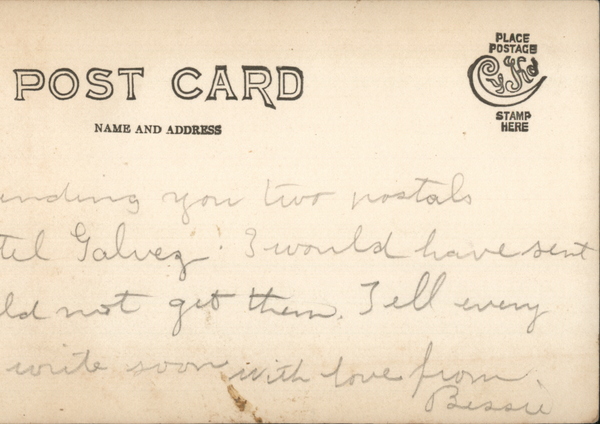 PLACE
POSTAGE
CyKo
STAMP
HERE
POST CARD
NAME AND ADDRESS
ending you two postals
tel Galvez. I would have sent
ld not get them. Tell every
write soon with love from.
Bessie